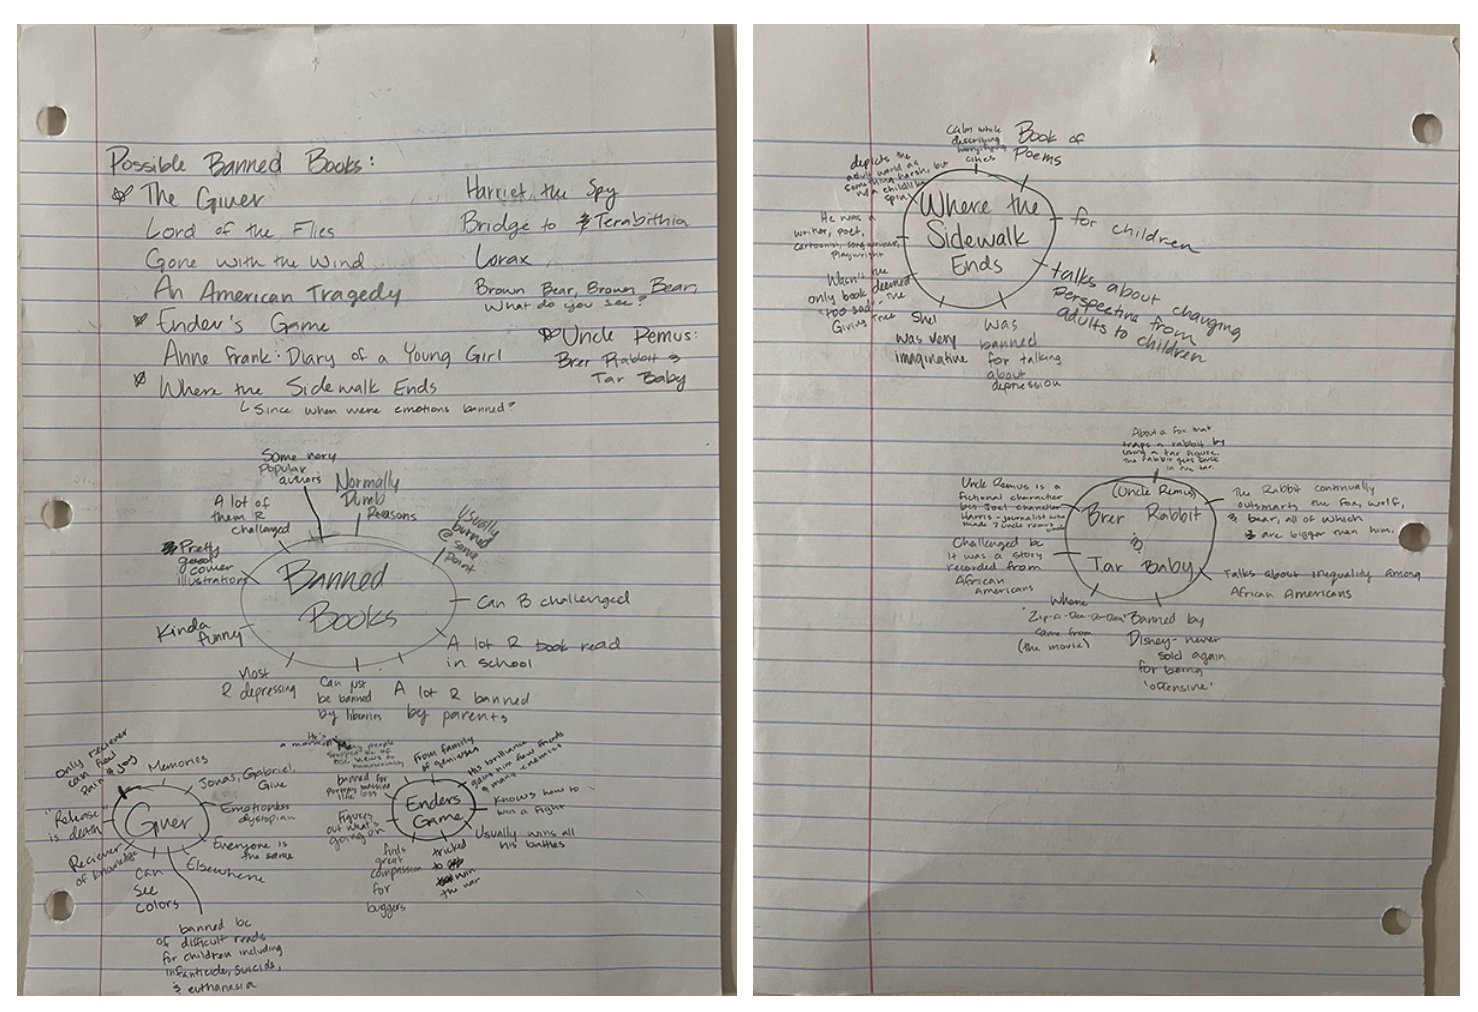 Possible Banned Books:
The Giver
Lord of the Flies
Gone with the Wind
An American Tragedy
Ender's Game
Anne Frank: Diary of a Young Girl
Where the Sidewalk Ends
Since when were emotions banned?
Harriet the Spy
Bridge to Terabithia
Lorax
Brown Bear, Brown Bear,
What do you see?
Uncle Remus:
Brer Rabbit &
Tar Baby
Banned
Books
Some very
popular
authors
Normally
Dumb
Reasons
Usually
burned
@ some
point
Can B challenged
A lot R book read
in school
A lot R banned
by parents
Can just
be banned
by libraries
Most
R depressing
Kinda
funny
Pretty
good
cover
illustrations
A lot of
them R
challenged
Giver
Memories
Jonas, Gabriel,
Give
Emotionless
dystopian
Everyone is
the same
Elsewhere
banned bc
of difficult reads
for children including
infanticide, suicide,
& euthanasia
Can
See
Colors
Reciever
of knowledge
"Release"
is death
Only reciever
can feel
pain & joy
Enders
Game
From family
of geniuses
His brilliance
gains him few friends
& many enemies
Knows how to
win a fight
Usually wins all
his battles
tricked
to
win
the war
finds
great
compassion
for
buggers
figures
out what's
going on
banned for
portraying massive
life loss
He's
a mormon
people
OSC views to
homosexuality
Where the
Sidewalk
Ends
calm while
describing
horrifying
cities
Book of
Poems
for children
talks about changing
Perspective from
adults to children
was
banned
for talking
about
depression
Shel
was very
imaginative
Wasn't the
only book deemed
"too sad" - the
Giving Tree
He was a
writer, poet,
cartoonist, songwriter,
playwright
depicts the
adult world as
something harsh, but
w/ a childlike
spin
(Uncle Remus)
Brer Rabbit
&
Tar Baby
About a fox that
traps a rabbit by
using a tar figure.
The Rabbit gets stuck
in the tar.
The Rabbit continually
outsmarts the fox, wolf,
& bear, all of which
are bigger than him.
Talks about inequality among
African Americans
Banned by
Disney - never
sold again
for being
"offensive"
Where
"Zip-A-Dee-Doo-Dah"
came from
(the movie)
Challenged bc
it was a story
recorded from
African
Americans
Uncle Remus is a
fictional character
by Joel Chandler
Harris - journalist who
made 7 Uncle Remus